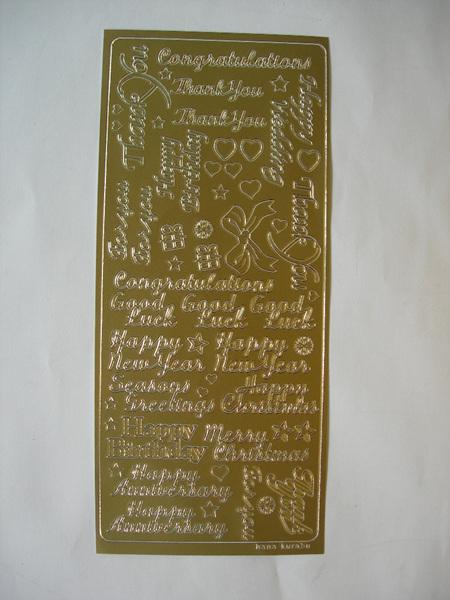 Congratulations
Thank You
Thank You
Thank You
Happy
Valentine
Happy
Birthday
For you
For you
Thank You
Congratulations
Good Good Good
Luck Luck Luck
Happy Happy
New Year New Year
Seasons Happy
Greetings Christmas
Happy Merry
Birthday Christmas
Happy
Anniversary
For you
Happy
Anniversary
hana kurabu